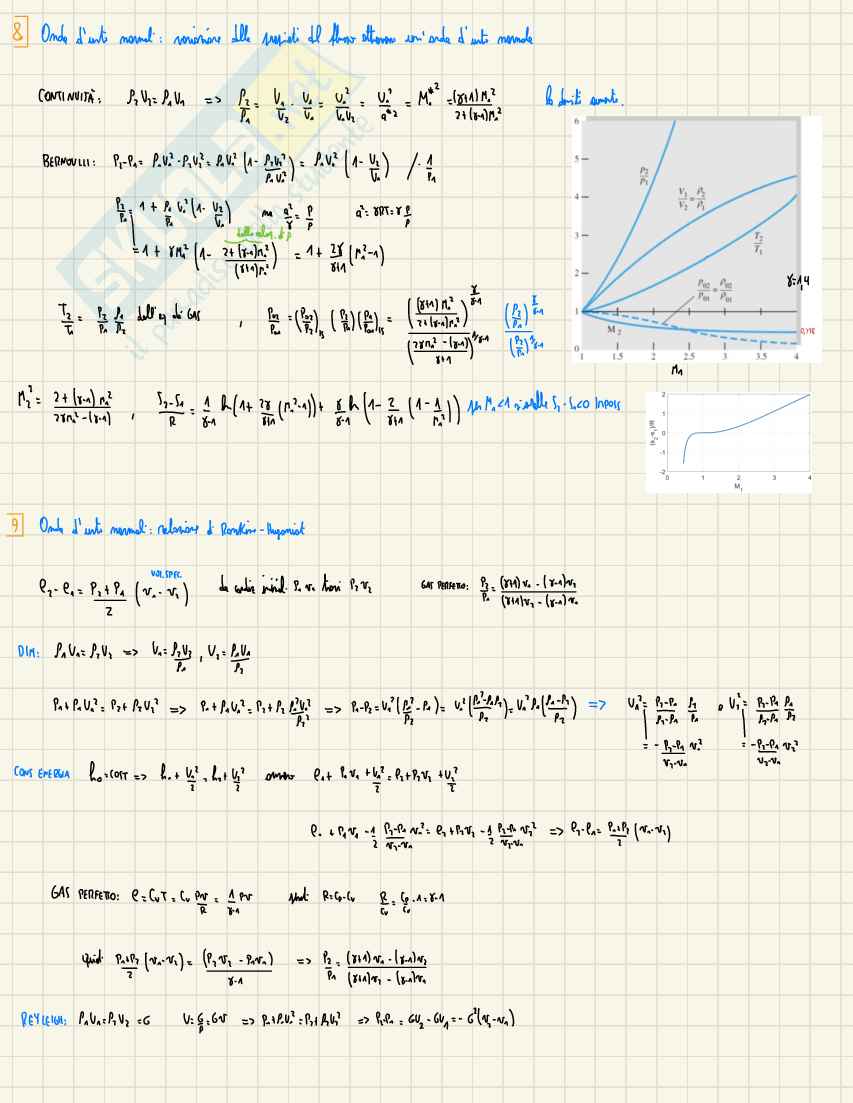 8 Onda d'urto normale: variazione delle proprietà del flusso attraverso un'onda d'urto normale
CONTINUITÀ: ρ₂V₂=ρ₁V₁ => ρ₂/ρ₁ = V₁/V₂ · V₁/V₁ = V₁²/V₁V₂ = V₁²/a*² = M₁*² = (γ+1)M₁²/2+(γ-1)M₁² la densità aumenta.
BERNOULLI: P₂-P₁= ρ₁V₁²-ρ₂V₂²= ρ₁V₁² (1- ρ₂V₂²/ρ₁V₁²) = ρ₁V₁² (1- V₂/V₁) /· 1/P₁
P₂/P₁ = 1 + ρ₁/P₁ V₁² (1- V₂/V₁) ma a²/γ = P/ρ a²= γRT= γ P/ρ
dalla relaz. di ρ
= 1 + γM₁² (1- 2+(γ-1)M₁²/(γ+1)M₁²) = 1 + 2γ/γ+1 (M₁²-1)
T₂/T₁ = P₂/P₁ ρ₁/ρ₂ dall'eq di GAS , P₀₂/P₀₁ = (P₀₂/P₂)is (P₂/P₁) (P₁/P₀₁)is = ((γ+1)M₁²/2+(γ-1)M₁²)^γ/γ-1 / (2γM₁²-(γ-1)/γ+1)^1/γ-1 (ρ₂/ρ₁)^γ/γ-1 / (P₂/P₁)^1/γ-1
M₂² = 2+(γ-1)M₁²/2γM₁²-(γ-1) , S₂-S₁/R = 1/γ-1 ln(1+ 2γ/γ+1 (M₁²-1)) + γ/γ-1 ln(1- 2/γ+1 (1- 1/M₁²)) per M₁<1 S₂-S₁<0 IMPOSS
6
5
4
3
2
1
0
P₂/P₁
V₁/V₂ = ρ₂/ρ₁
T₂/T₁
P₀₂/P₀₁ = ρ₀₂/ρ₀₁
γ=1,4
M₂
0,378
1 1.5 2 2.5 3 3.5 4
M₁
2
1
0
-1
-2
(s₂-s₁)/R
0 1 2 3 4
M₁
9 Onda d'urto normale: relazione di Rankine-Hugoniot
VOL.SPEC.
e₂-e₁ = P₂+P₁/2 (v₁-v₂) da condiz iniziali P₁ v₁ trovi P₂ v₂ GAS PERFETTO: P₂/P₁ = (γ+1)v₁-(γ-1)v₂/(γ+1)v₂-(γ-1)v₁
DIM: ρ₁V₁=ρ₂V₂ => V₁= ρ₂V₂/ρ₁ , V₂= ρ₁V₁/ρ₂
P₁+ρ₁V₁²=P₂+ρ₂V₂² => P₁+ρ₁V₁²=P₂+ρ₂ ρ₁²V₁²/ρ₂² => P₁-P₂=V₁²(ρ₁²/ρ₂ -ρ₁)= V₁²(ρ₁²-ρ₁ρ₂/ρ₂)=V₁²ρ₁(ρ₁-ρ₂/ρ₂) => V₁²= P₂-P₁/ρ₂-ρ₁ ρ₂/ρ₁ e V₂²= P₂-P₁/ρ₂-ρ₁ ρ₁/ρ₂
= - P₂-P₁/v₂-v₁ v₁² = - P₂-P₁/v₂-v₁ v₂²
CONS ENERGIA h₀=COST => h₁+V₁²/2 = h₂+V₂²/2 ovvero e₁+P₁v₁+V₁²/2=e₂+P₂v₂+V₂²/2
e₁+P₁v₁-1/2 P₂-P₁/v₂-v₁ v₁²= e₂+P₂v₂-1/2 P₂-P₁/v₂-v₁ v₂² => e₂-e₁= P₁+P₂/2 (v₁-v₂)
GAS PERFETTO: e=CᵥT=Cᵥ Pv/R = 1/γ-1 Pv R=Cp-Cᵥ R/Cᵥ = Cp/Cᵥ -1=γ-1
quindi P₁+P₂/2 (v₁-v₂)= (P₂v₂-P₁v₁)/γ-1 => P₂/P₁ = (γ+1)v₁-(γ-1)v₂/(γ+1)v₂-(γ-1)v₁
REYLEIGH: ρ₁V₁=ρ₂V₂=G V=G/ρ=Gv => P₁+ρ₁V₁²=P₂+ρ₂V₂² => P₂-P₁= GV₂-GV₁=-G²(v₂-v₁)
SKUOLA.net
il paradiso dello studente